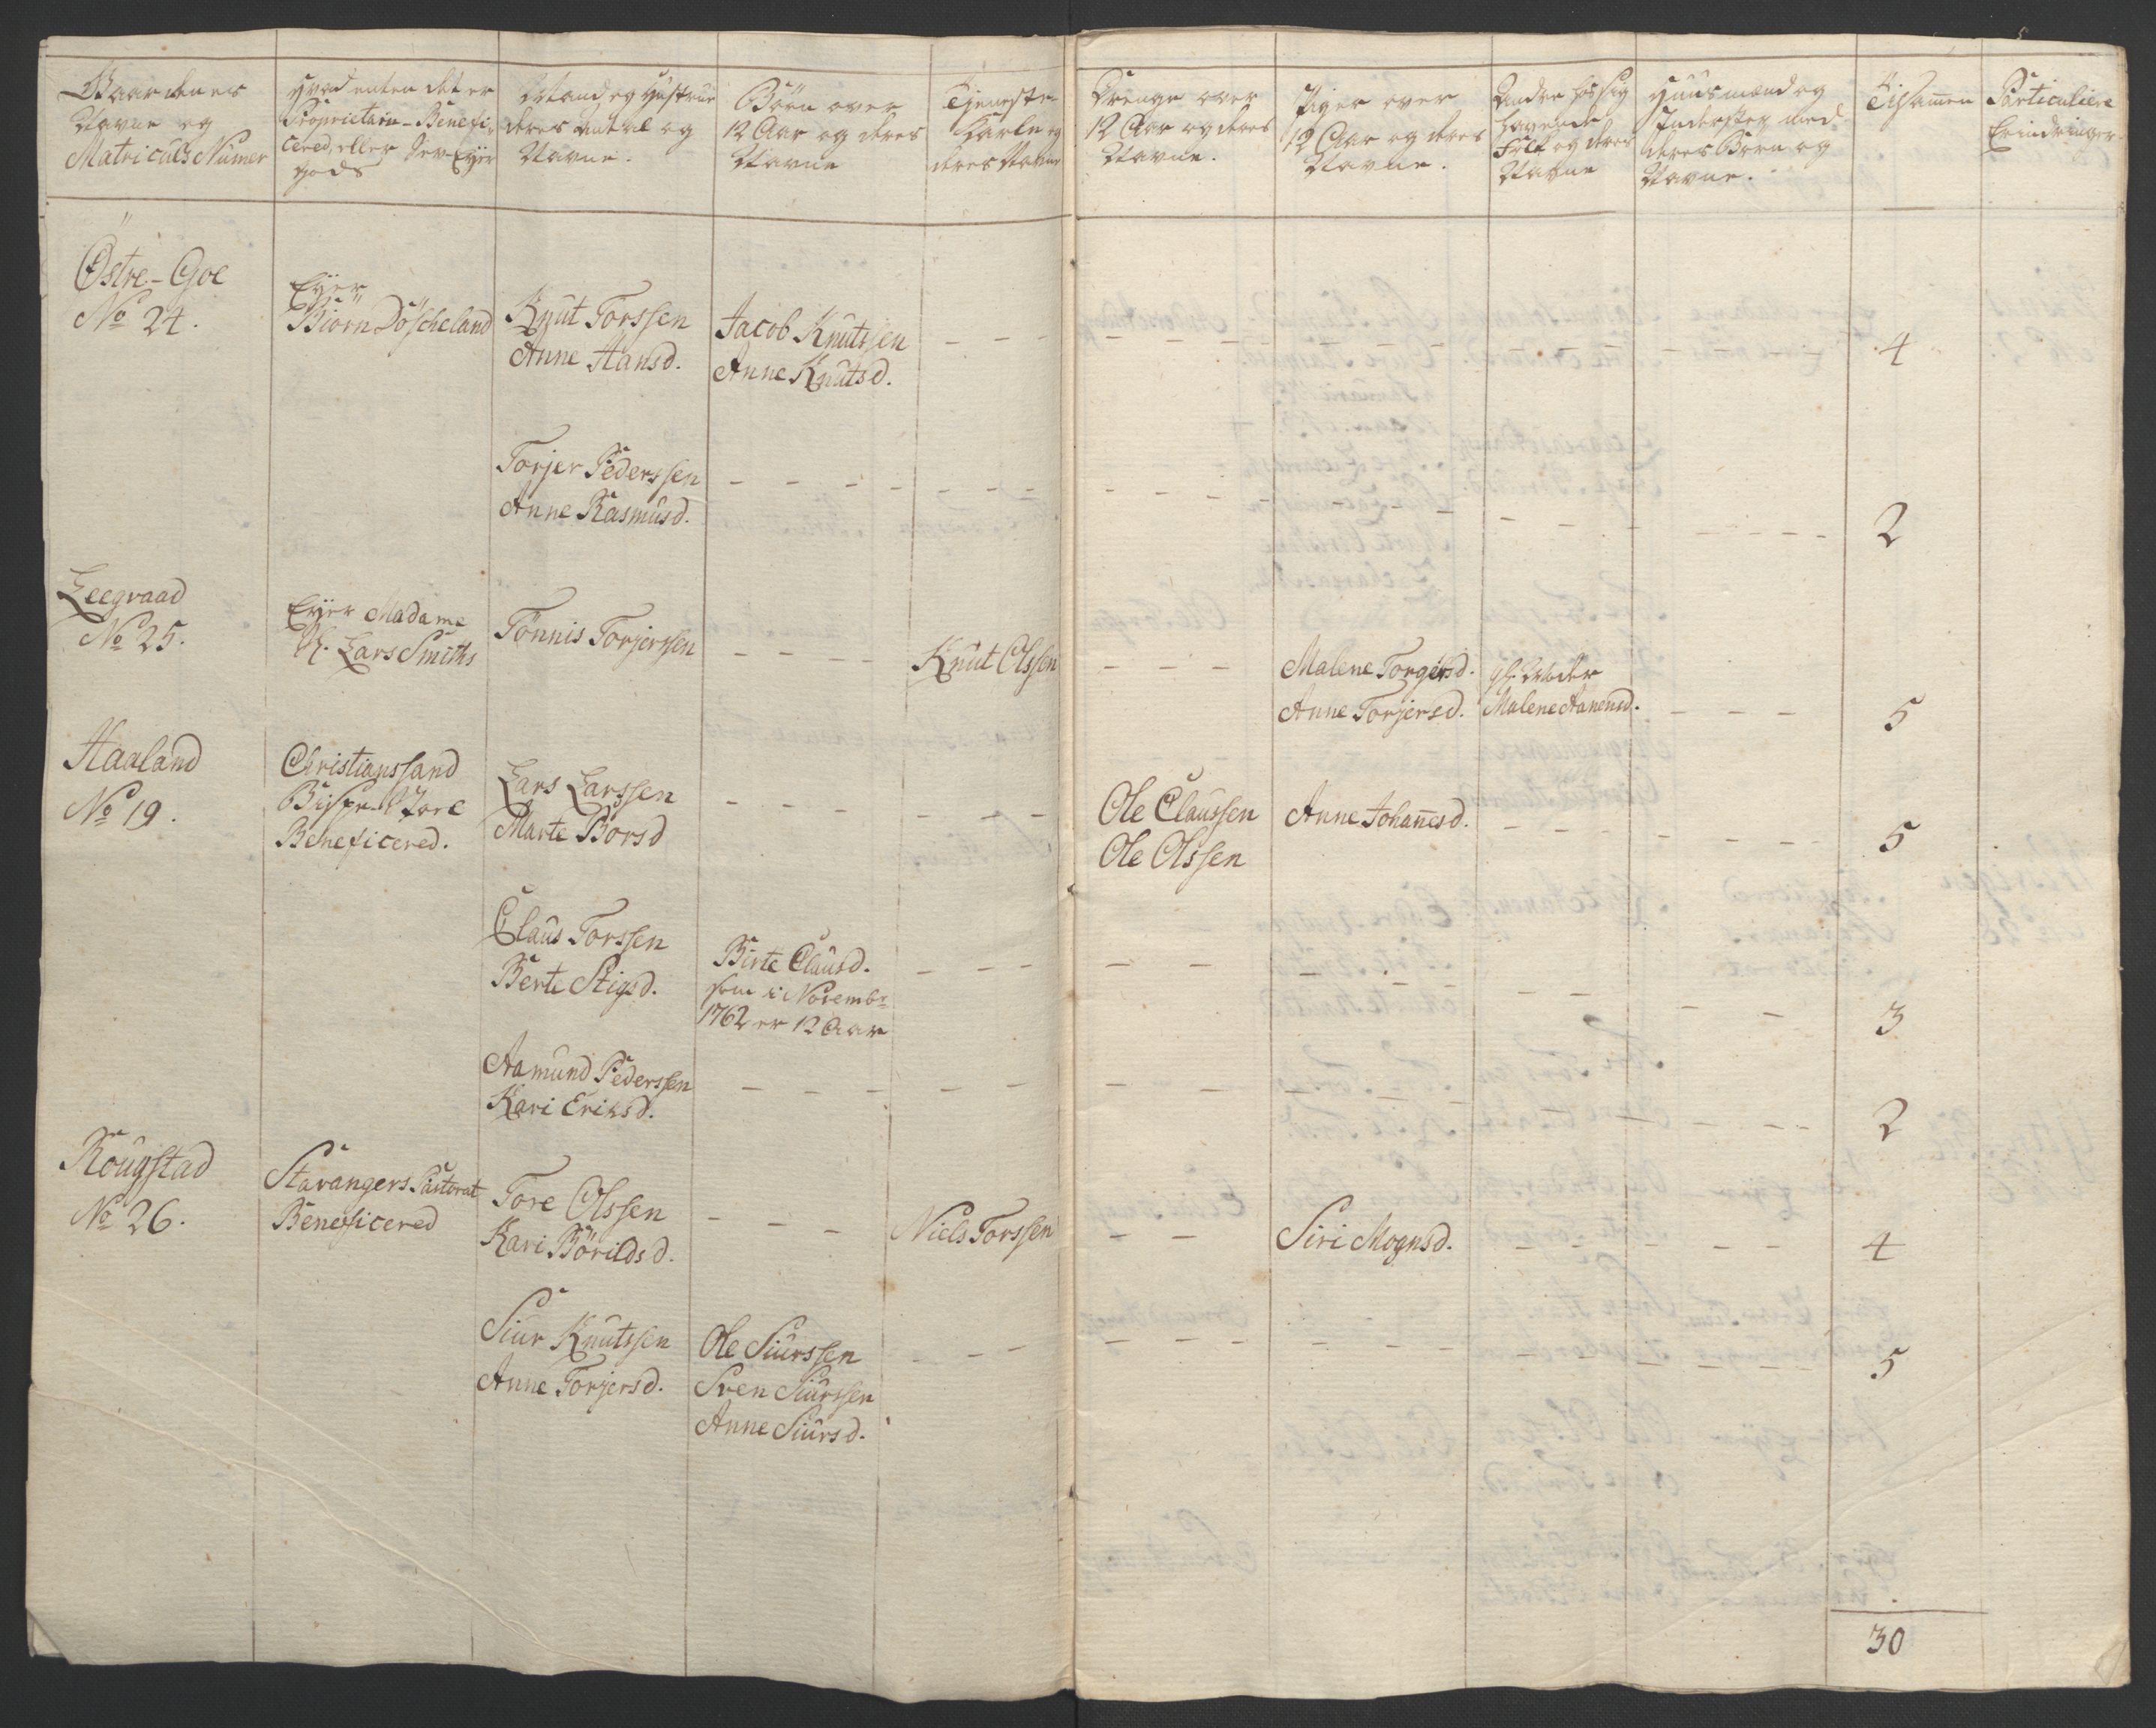 Gaardenes
Navne og
Matriculs Numer
Hvad enten det er
Proprietair- Benefi-
cered, eller Selv-Eyer
gods
Mand og Hustrue
deres Antal og
Navne.
Börn over
12 Aar og deres
Navne
Tjeneste-
Karle og
deres Navne
Drenge over
12 Aar og deres
Navne.
Piger over
12 Aar og deres
Navne.
Andre hos sig
havende
Folk og deres
Navne
Huusmænd og
Inderster med
deres Börn og
Navne.
Tilsamen
Particuliere
Erindringer
Östre-Goe
No 24.
Eyer
Biörn
Knut Torssen
Anne Hansd.
Jacob Knutssen
Anne Knutsd.
4
Torjer Pederssen
Anne Rasmusd.
2
Leegvaad
No 25.
Eyer Madame
Sl. Lars Smiths
Tönnis Torjerssen
Knut Olssen
Malene Torgersd.
Anne Torjersd.
Moder
Malene Aanensd.
5
Haaland
No 19.
Christianssand
Bispe-Stoel
Beneficered.
Lars Larssen
Marte Börsd
Ole Claussen
Ole Olssen
Anne Johañesd.
5
Claus Torssen
Berte Stigsd.
Birte Clausd.
som i Novembr
1762 er 12 Aar
3
Aamund Pederssen
Kari Eriksd.
2
Rougstad
No 26.
Stavangers Pastorat
Beneficered
Tore Olssen
Kari Börildsd.
Niels Torssen
Siri Mognsd.
4
Siur Knutssen
Anne Torjersd.
Ole Siurssen
Sven Siurssen
Anne Siursd.
5
30